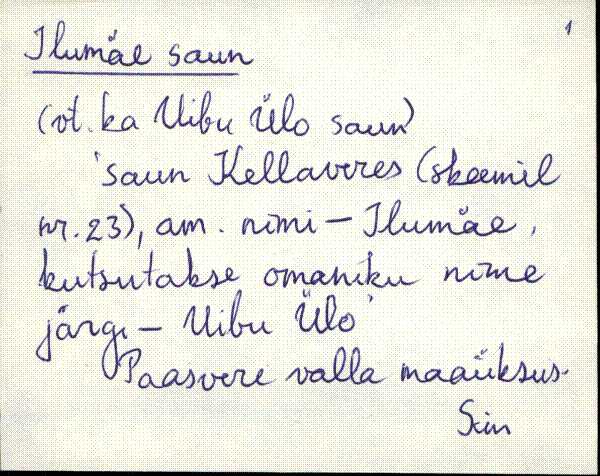 1
Ilumäe saun
(vt. ka Uibu Ülo saun)
'saun Kellaveres (skeemil
nr. 23), am. nimi – Ilumäe,
kutsutakse omaniku nime
järgi – Uibu Ülo'
Paasvere valla maaüksus.
Sim